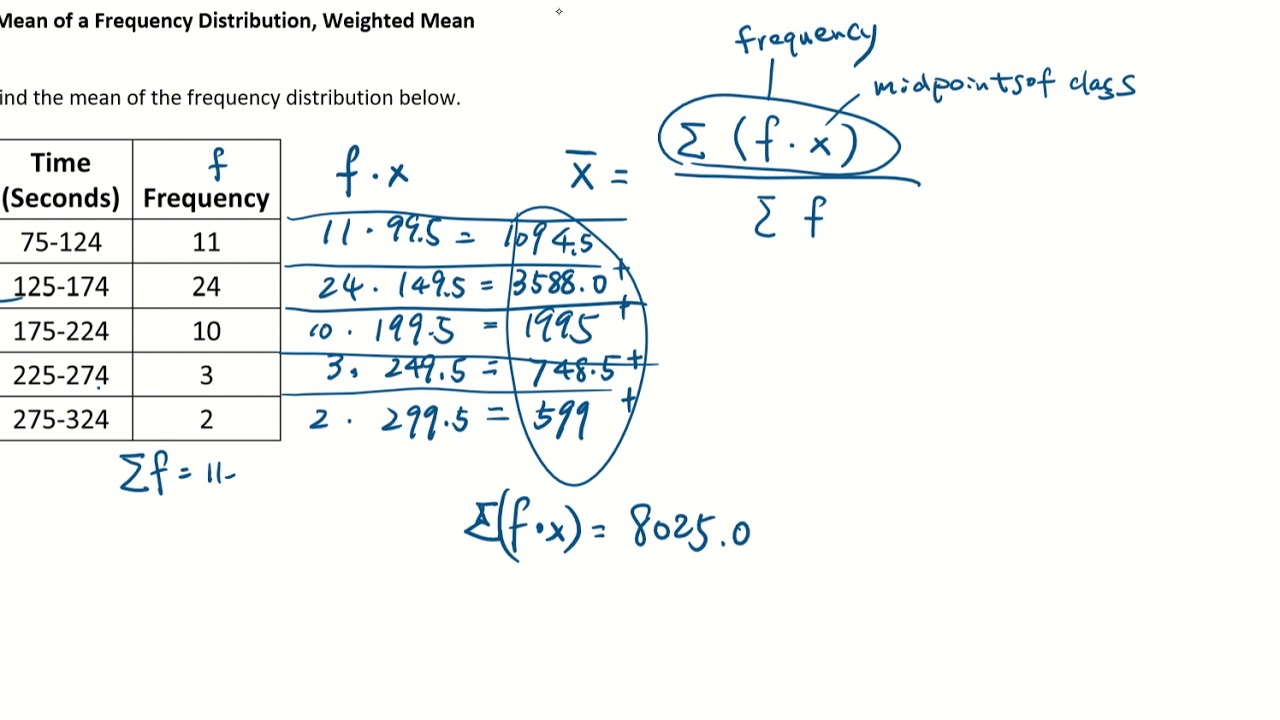 Mean of a Frequency Distribution, Weighted Mean
frequency
midpoints of class
ind the mean of the frequency distribution below.
x̄ = Σ (f · x)
Σ f
Time (Seconds) f Frequency f · x
75-124 11 11 · 99.5 = 1094.5
125-174 24 24 · 149.5 = 3588.0 +
175-224 10 10 · 199.5 = 1995 +
225-274 3 3 · 249.5 = 748.5 +
275-324 2 2 · 299.5 = 599 +
Σf = 11-
Σ(f·x) = 8025.0